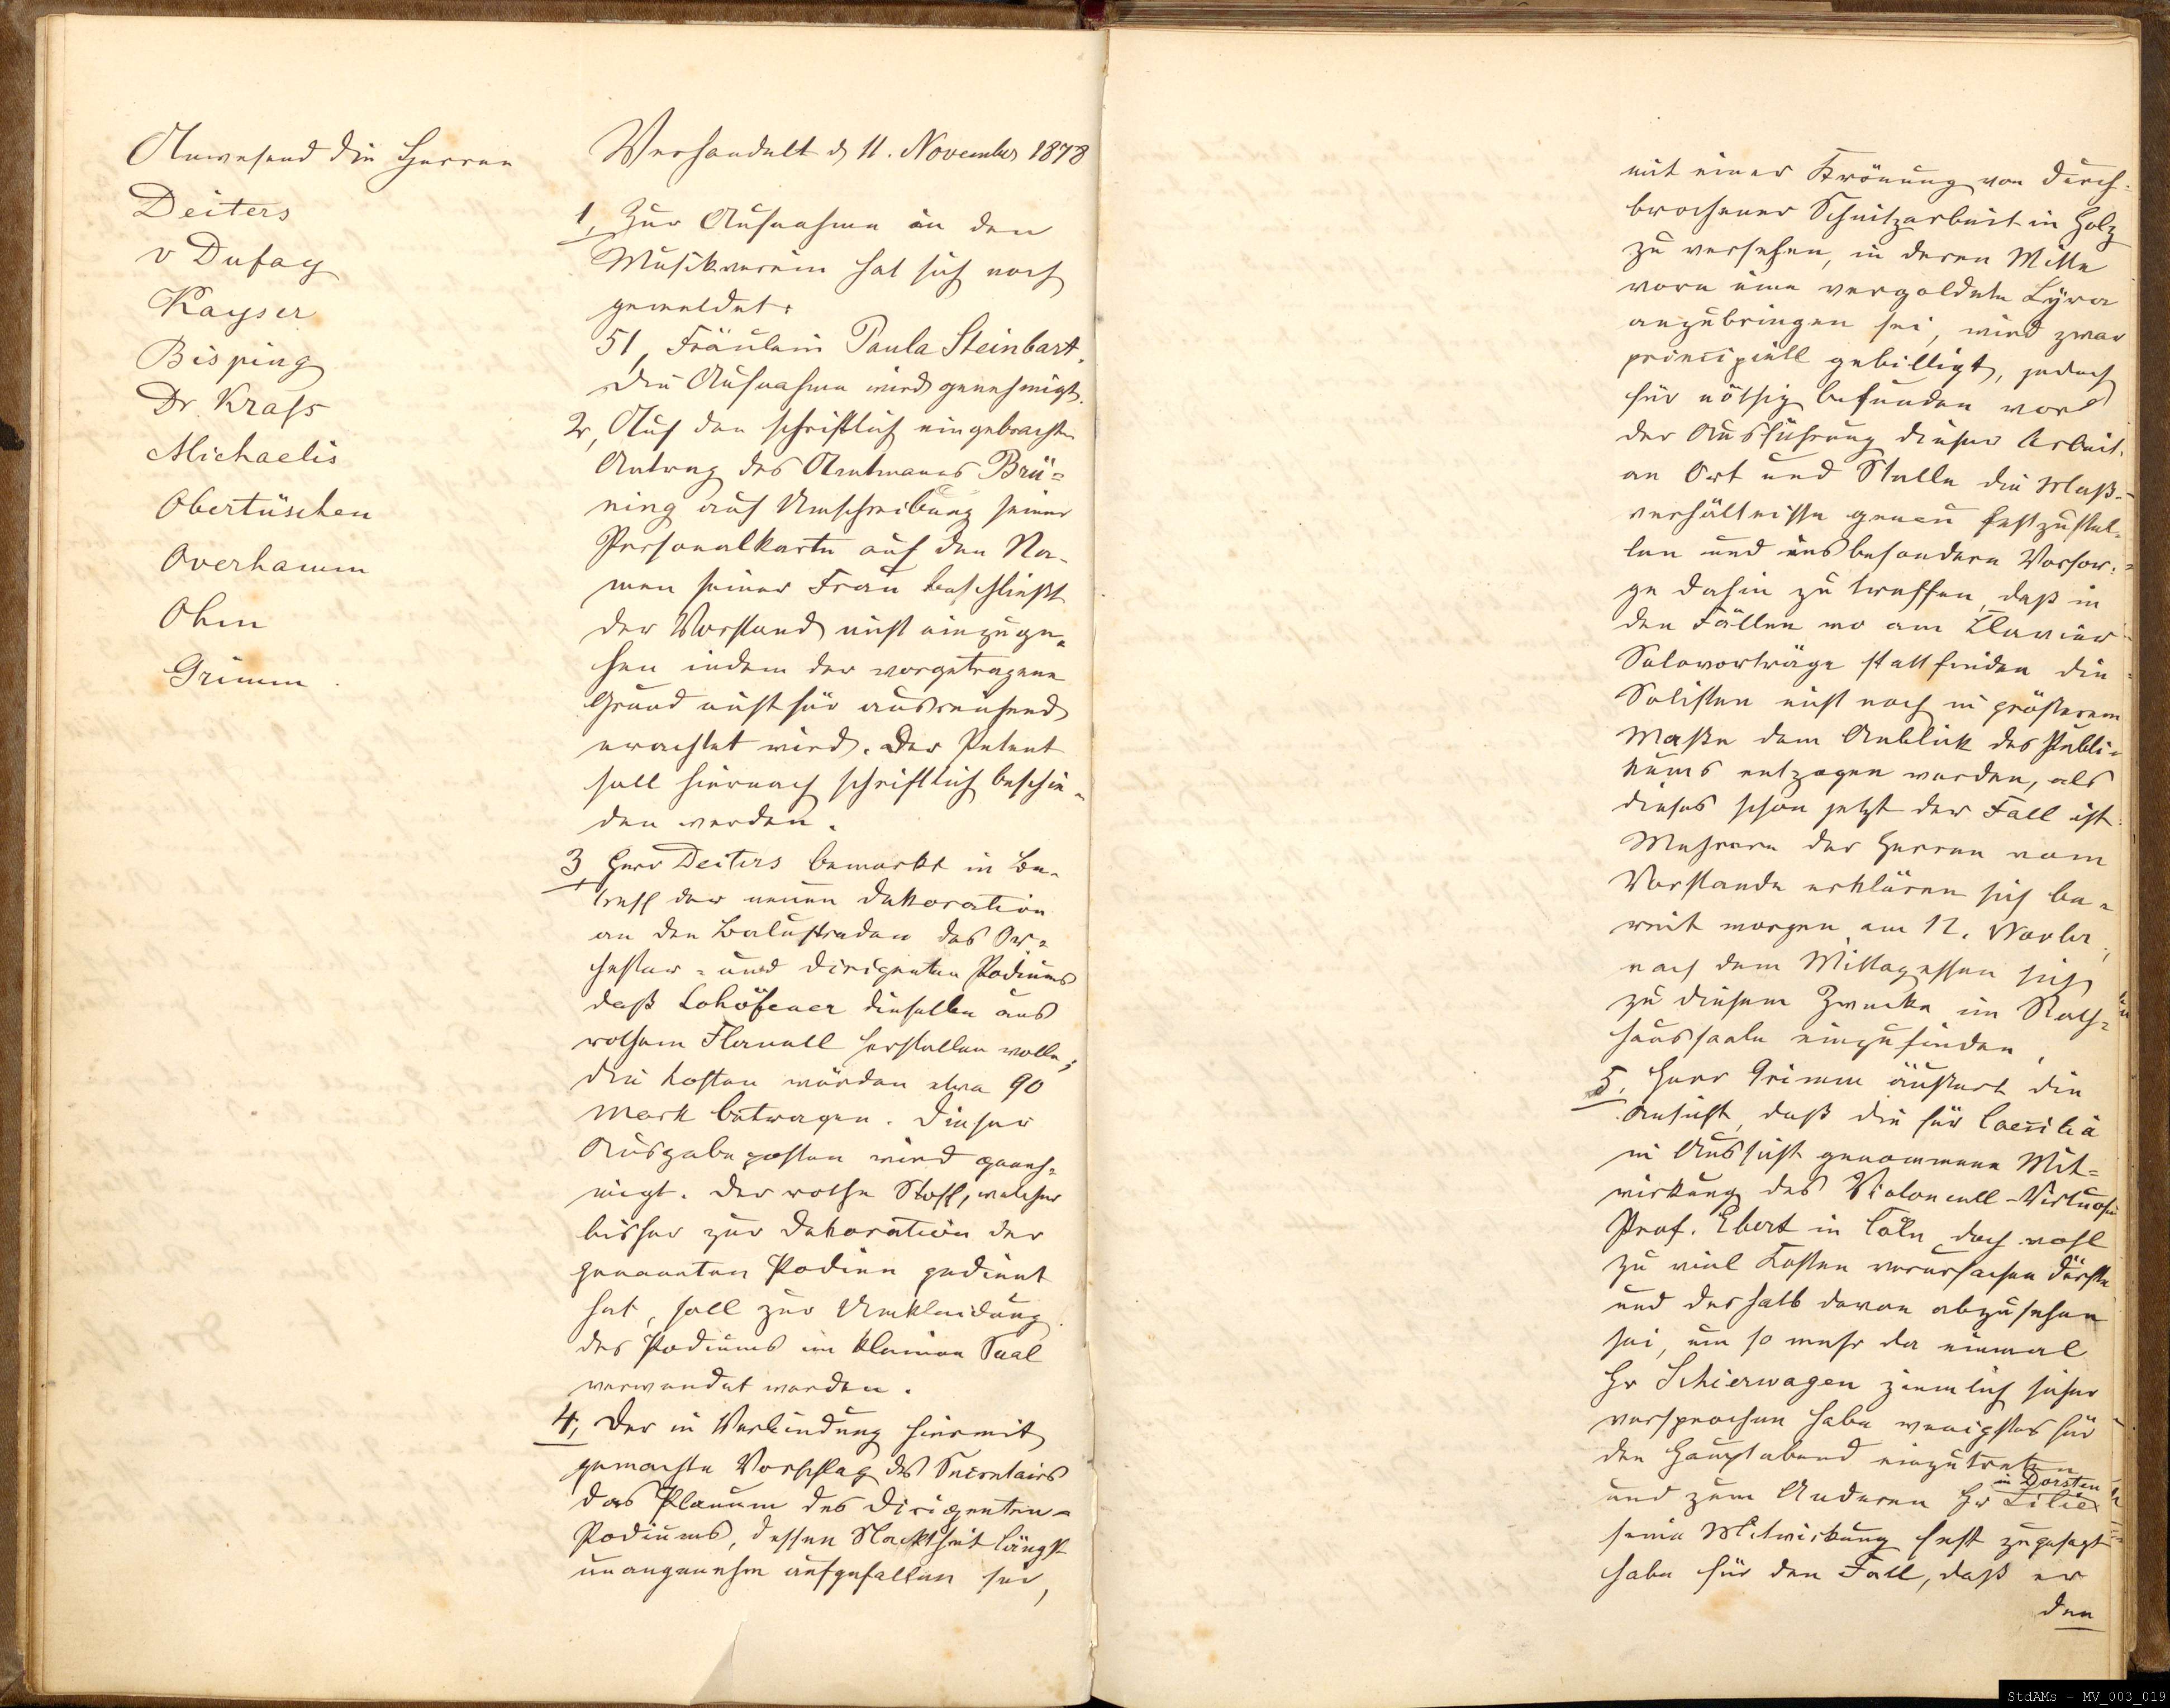 Anwesend die Herren
Deiters
v Dufay
Kayser
Bisping
Dr. Krass
Michaelis
Obertüschen
Overhamm
Ohm
Grimm.
Verhandelt d 11. November 1878
1, Zur Aufnahme in den
Musikverein hat sich noch
gemeldet:
51, Fräulein Paula Steinbart.
Die Aufnahme wird genehmigt.
2, Auf den schriftlich eingebrachten
Antrag des Amtmanns Brü=
ning auf Umschreibung seiner
Personalkarte auf den Na-
men seiner Frau beschließt
der Vorstand nicht einzuge=
hen indem der vorgetragene
Grund nicht für ausreichend
erachtet wird. Der Petent
soll hiernach schriftlich beschie=
den werden.
3, Herr Deiters bemerkt in Be-
treff der neuen Dekoration
an den Balustraden des Or=
chester= und Dirigenten Podiums
daß Lohöfener dieselben aus
rothem Flanell herstellen wolle;
die Kosten würden etwa 90
Mark betragen. Dieser
Ausgabeposten wird geneh=
migt. Der rothe Stoff, welcher
bisher zur Dekoration der
genannten Podien gedient
hat, soll zur Umkleidung
des Podiums im kleinen Saal
verwendet werden.
4, Der in Verbindung hiermit
gemachte Vorschlag des Secretairs
das Planum des Dirigenten=
Podiums, dessen Nacktheit längst
unangenehm aufgefallen sei,
mit einer Krönung von durch=
brochener Schnitzarbeit in Holz
zu versehen, in deren Mitte
vorn eine vergoldete Lyra
anzubringen sei, wird zwar
principiell gebilligt, jedoch
für nöthig befunden vor
der Ausführung dieser Arbeit
an Ort und Stelle die Maß=
verhältnisse genau festzustel=
len und insbesondere Vorsor=
ge dahin zu treffen, daß in
den Fällen wo am Clavier
Solovorträge stattfinden die
Solisten nicht noch in größerem
Maße dem Anblick des Publi=
kums entzogen werden, als
dieses schon jetzt der Fall ist.
Mehrere der Herren vom
Vorstande erklären sich be=
reit morgen am 12. Novber,
nach dem Mittagessen sich
zu diesem Zwecke im Rath=
haussaale einzufinden.
5, Herr Grimm äußert die
Ansicht, daß die für Caecilia
in Aussicht genommene Mit=
wirkung des Violoncell-Virtuosen
Prof. Ebert in Cöln doch wohl
zu viel Kosten verursachen dürfte
und deshalb davon abzusehen
sei, um so mehr da einmal
Hr Schierwagen ziemlich sicher
versprochen habe wenigstens für
den Hauptabend einzutreten
in Dorsten
und zum Anderen Hr Lilie
seine Mitwirkung fest zugesagt
habe für den Fall, daß er
den
StdAMs - MV_003_019